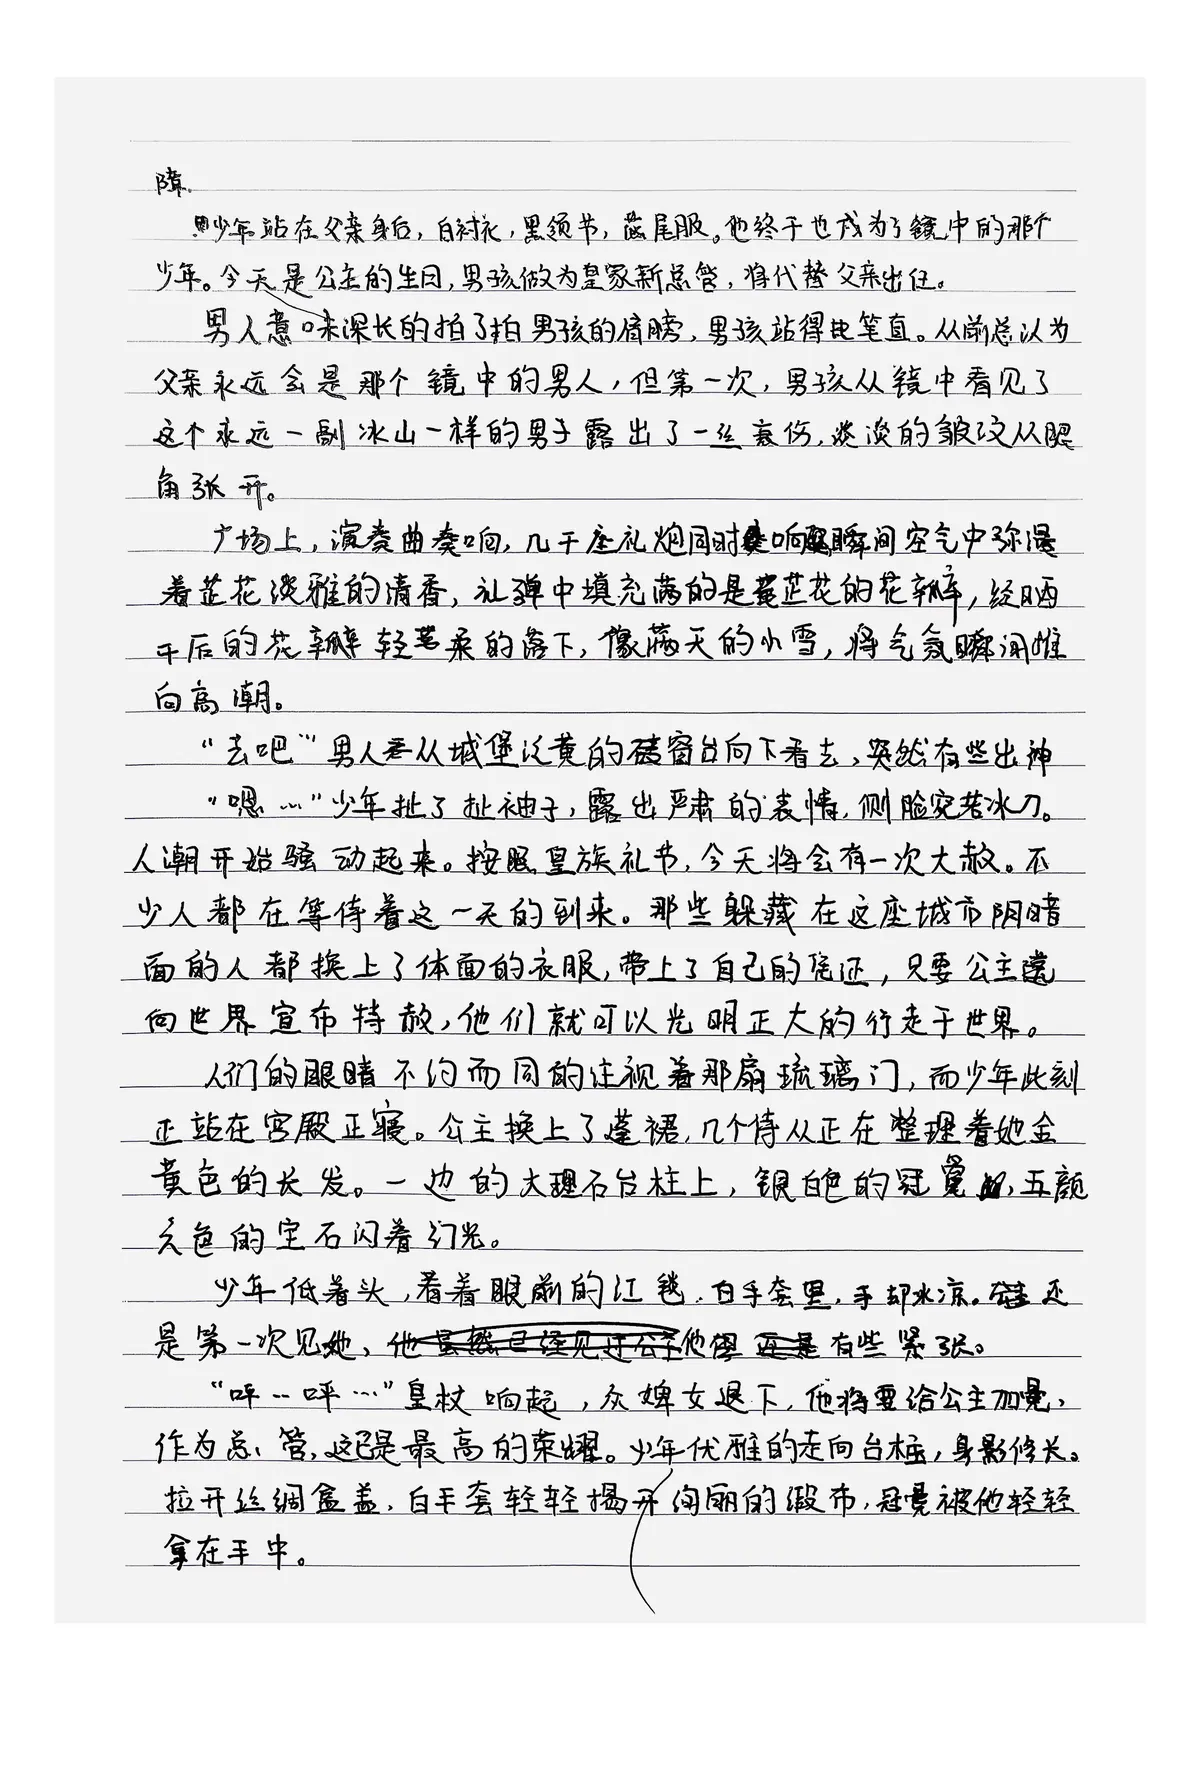 障.
少年站在父亲身后，白衬衣，黑领节，燕尾服。他终于也成为了镜中的那个
少年。今天是公主的生日，男孩做为皇家新总管，将代替父亲出任。
男人意味深长的拍了拍男孩的肩膀，男孩站得笔直。从前总认为
父亲永远会是那个镜中的男人，但第一次，男孩从镜中看见了
这个永远一副冰山一样的男子露出了一丝哀伤，淡淡的皱纹从眼
角张开。
广场上，演奏曲奏响，几千座礼炮同时响瞬间空气中弥漫
着芷花淡雅的清香，礼弹中填充满的是芷花的花瓣，经晒
干后的花瓣轻柔的落下，像满天的小雪，将气氛瞬间推
向高潮。
“去吧”男人从城堡泛黄的砖窗台向下看去，突然有些出神
“嗯…”少年扯了扯袖子，露出严肃的表情，侧脸宛若冰刀。
人潮开始骚动起来。按照皇族礼节，今天将会有一次大赦。不
少人都在等待着这一天的到来。那些躲藏在这座城市阴暗
面的人都换上了体面的衣服，带上了自己的凭证，只要公主
向世界宣布特赦，他们就可以光明正大的行走于世界。
人们的眼睛不约而同的注视着那扇琉璃门，而少年此刻
正站在宫殿正寝。公主换上了蓬裙，几个侍从正在整理着她金
黄色的长发。一边的大理石台柱上，银白色的冠冕，五颜
六色的宝石闪着幻光。
少年低着头，看着眼前的红毯．白手套里，手却冰凉。还
是第一次见她，他有些紧张。
“呯‥呯…”皇杖响起，众婢女退下，他将要给公主加冕，
作为总管，这已是最高的荣耀。少年优雅的走向台柱，身影修长。
拉开丝绸盒盖．白手套轻轻揭开绚丽的缎布，冠冕被他轻轻
拿在手中。